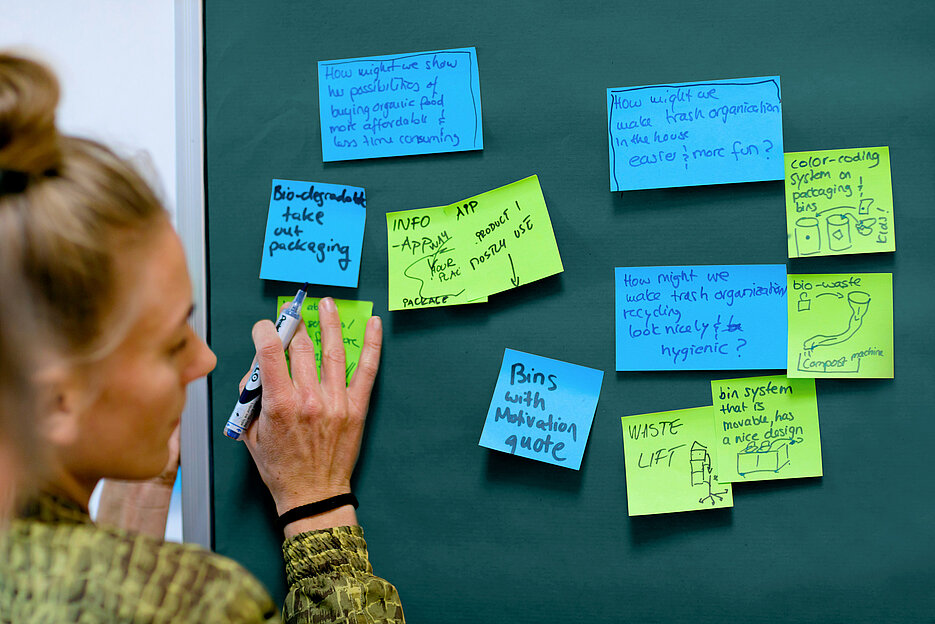 How might we show
he possibilities of
buying organic food
more affordable &
less time consuming
How might we
make trash organization
in the house
easier & more fun?
color-coding
system on
packaging &
bins
kids!
Bio-degradable
take
out
packaging
INFO
- APP
WAY
YOUR
PLA
PACKAGE
APP
PRODUCT!
MOSTLY USE
How might we
make trash organization
recycling
look nicely &
hygienic?
bio-waste
Compost machine
Bins
with
Motivation
quote
WASTE
LIFT
bin system
that is
movable, has
a nice design